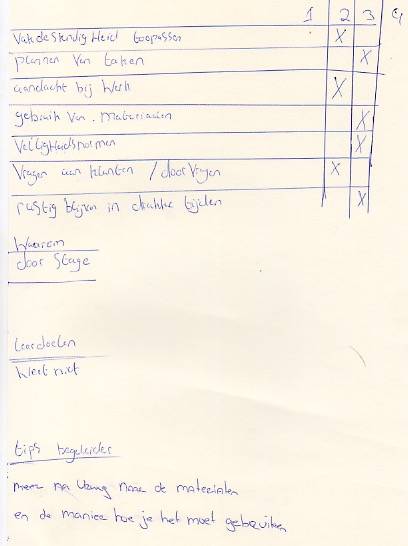 1 2 3 4
Vakdeskundigheid toepassen X
plannen van taken X
aandacht bij Werk X
gebruik van materialen X
Veiligheidsnormen X
Vragen aan klanten / doorvragen X
rustig blijven in drukke tijden X
Waarom
door Stage
Leerdoelen
Weet niet
tips begeleider
meer na vraag naar de materialen
en de manier hoe je het moet gebruiken